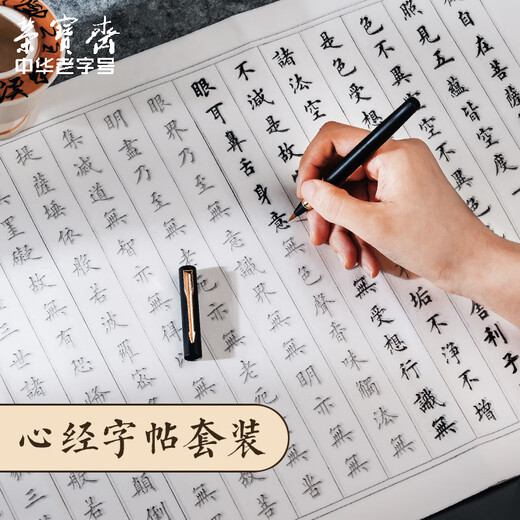 荣寶齋
中华老字号
自在菩薩
照見五蘊皆空度一
色不異空空不異
舍利子
是色受想
垢不淨不增
諸法空
不減是故
受想行識無
眼耳鼻舌身意無色聲香味觸法無
眼界乃至無意識
明亦無
明盡乃至無老
亦無老
苦
集滅道無智亦無得
提薩埵依般若波羅蜜
顛倒
罣礙故無有恐
三世諸
般若
心经字帖套装